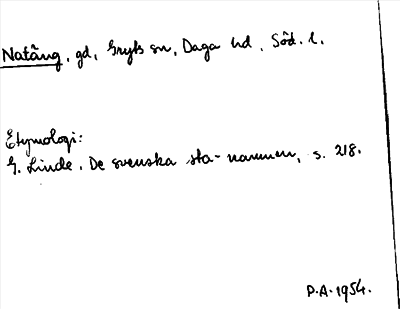 Natäng, gd, Gryts sn, Daga hd, Söd. l.
Etymologi:
G. Linde, De svenska sta-namnen, s. 218.
P.A. 1954.